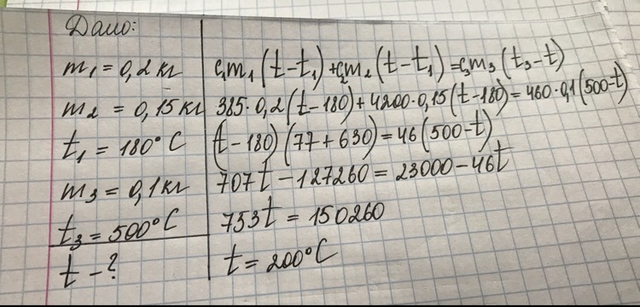 Дано:
m₁ = 0,2 кг
m₂ = 0,15 кг
t₁ = 180°C
m₃ = 0,1 кг
t₃ = 500°C
t - ?
c₁m₁(t-t₁)+c₂m₂(t-t₁)=c₃m₃(t₃-t)
385·0,2(t-180)+4200·0,15(t-180)=460·0,1(500-t)
(t-180)(77+630)=46(500-t)
707t-127260=23000-46t
753t=150260
t=200°C